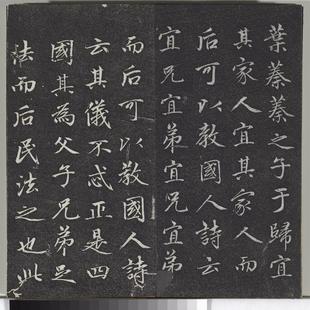 葉蓁蓁之子于歸宜
其家人宜其家人而
后可以教國人詩云
宜兄宜弟宜兄宜弟
而后可以教國人詩
云其儀不忒正是四
國其為父子兄弟足
法而后民法之也此